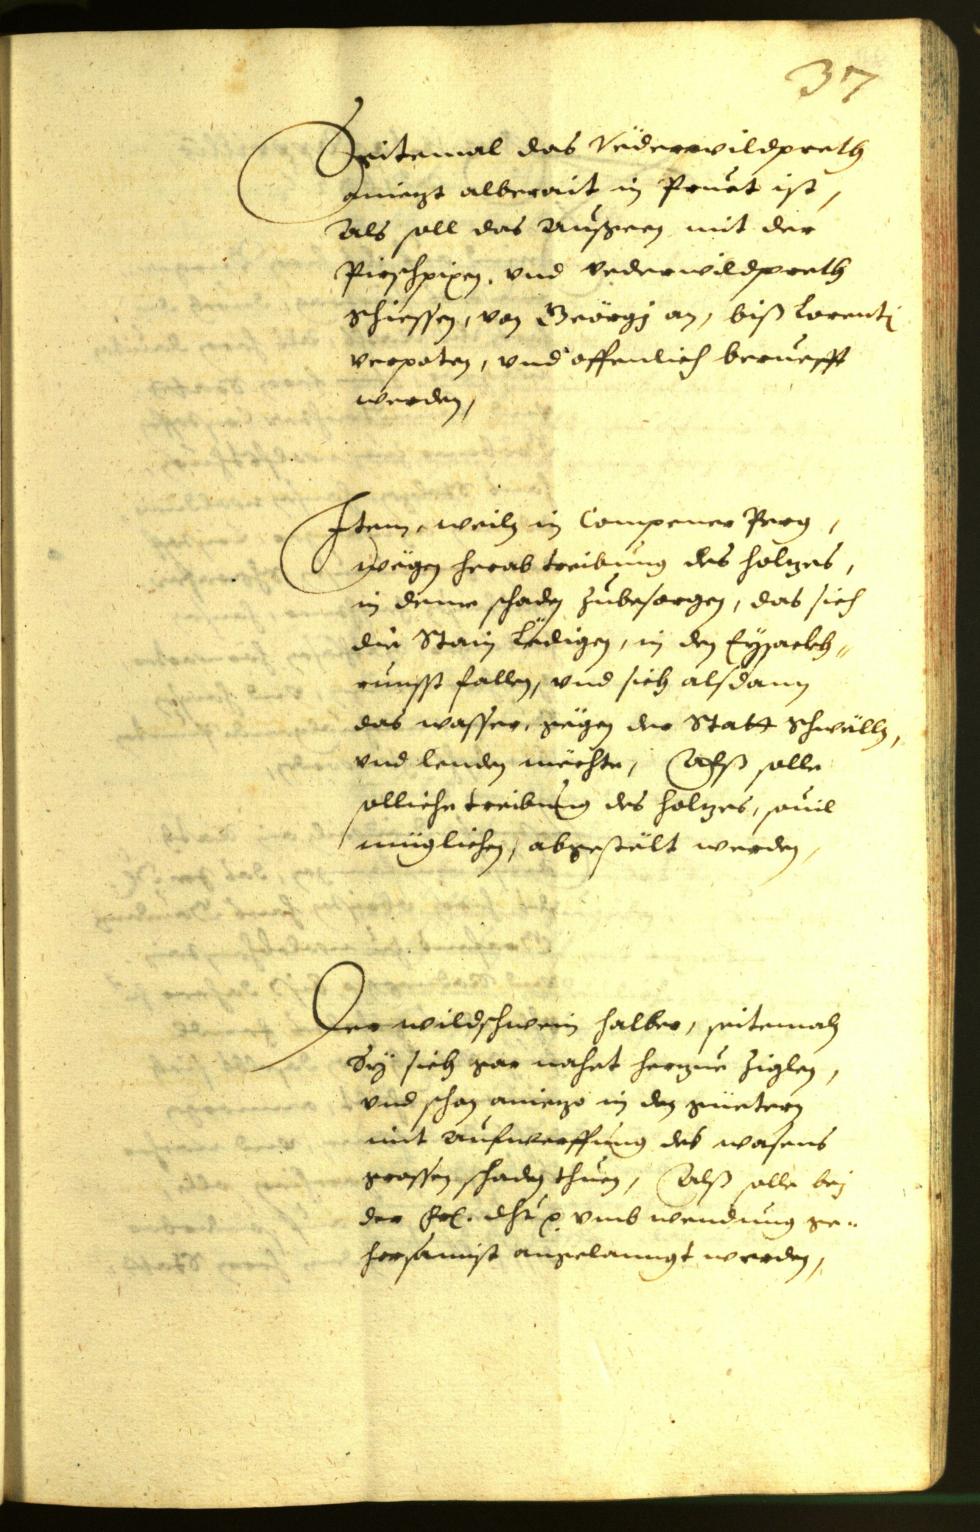 37
Seitemal das Vëderwildpreth
aniezt alberait in Pruet ist,
Als soll das Außgeen mit der
Pirschpixen, vnd vederwildpreth
schiessen, von Geörgj an, biß Lorentj
verpoten, vnd offenlich beruefft
werden,
Item, weiln in Campener Perg,
wëgen herab treibung des holzes,
in deme schaden zubesorgen, das sich
die Stain Lëdigen, in den Eysackh„
runsst fallen, vnd sich alsdann
das wasser, gëgen der Statt schwölln,
vnd lenden mechte, Alß solle
solliche treibung des holzes, souil
müglichen, abgestëlt werden,
Der wildschwein halber, seitemaln
Sy sich gar nahet herzue Ziglen,
vnd schon aniezo in den güetern
mit Aufwerffung des wasens
grossen schaden thuen, Alß solle bej
der vmb wendung ge„
horsamist angelanngt werden,